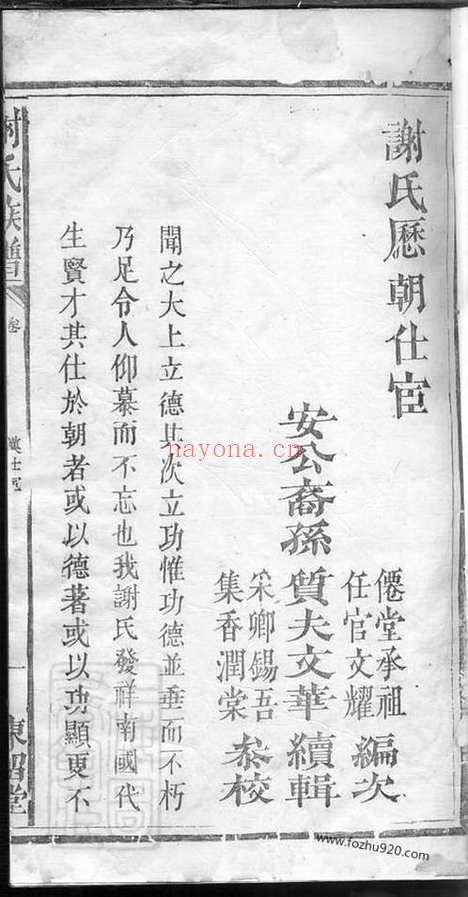 謝氏歷朝仕宦
僊堂承祖
任官文耀
編次
安公裔孫
質夫文華
續輯
采卿錫吾
集香潤棠
叅校
聞之大上立德其次立功惟功德並垂而不朽
乃足令人仰慕而不忘也我謝氏發祥南國代
生賢才其仕於朝者或以德著或以功顯更不
謝氏族譜
卷
東
堂
nayona.cn
www.fozhu920.com